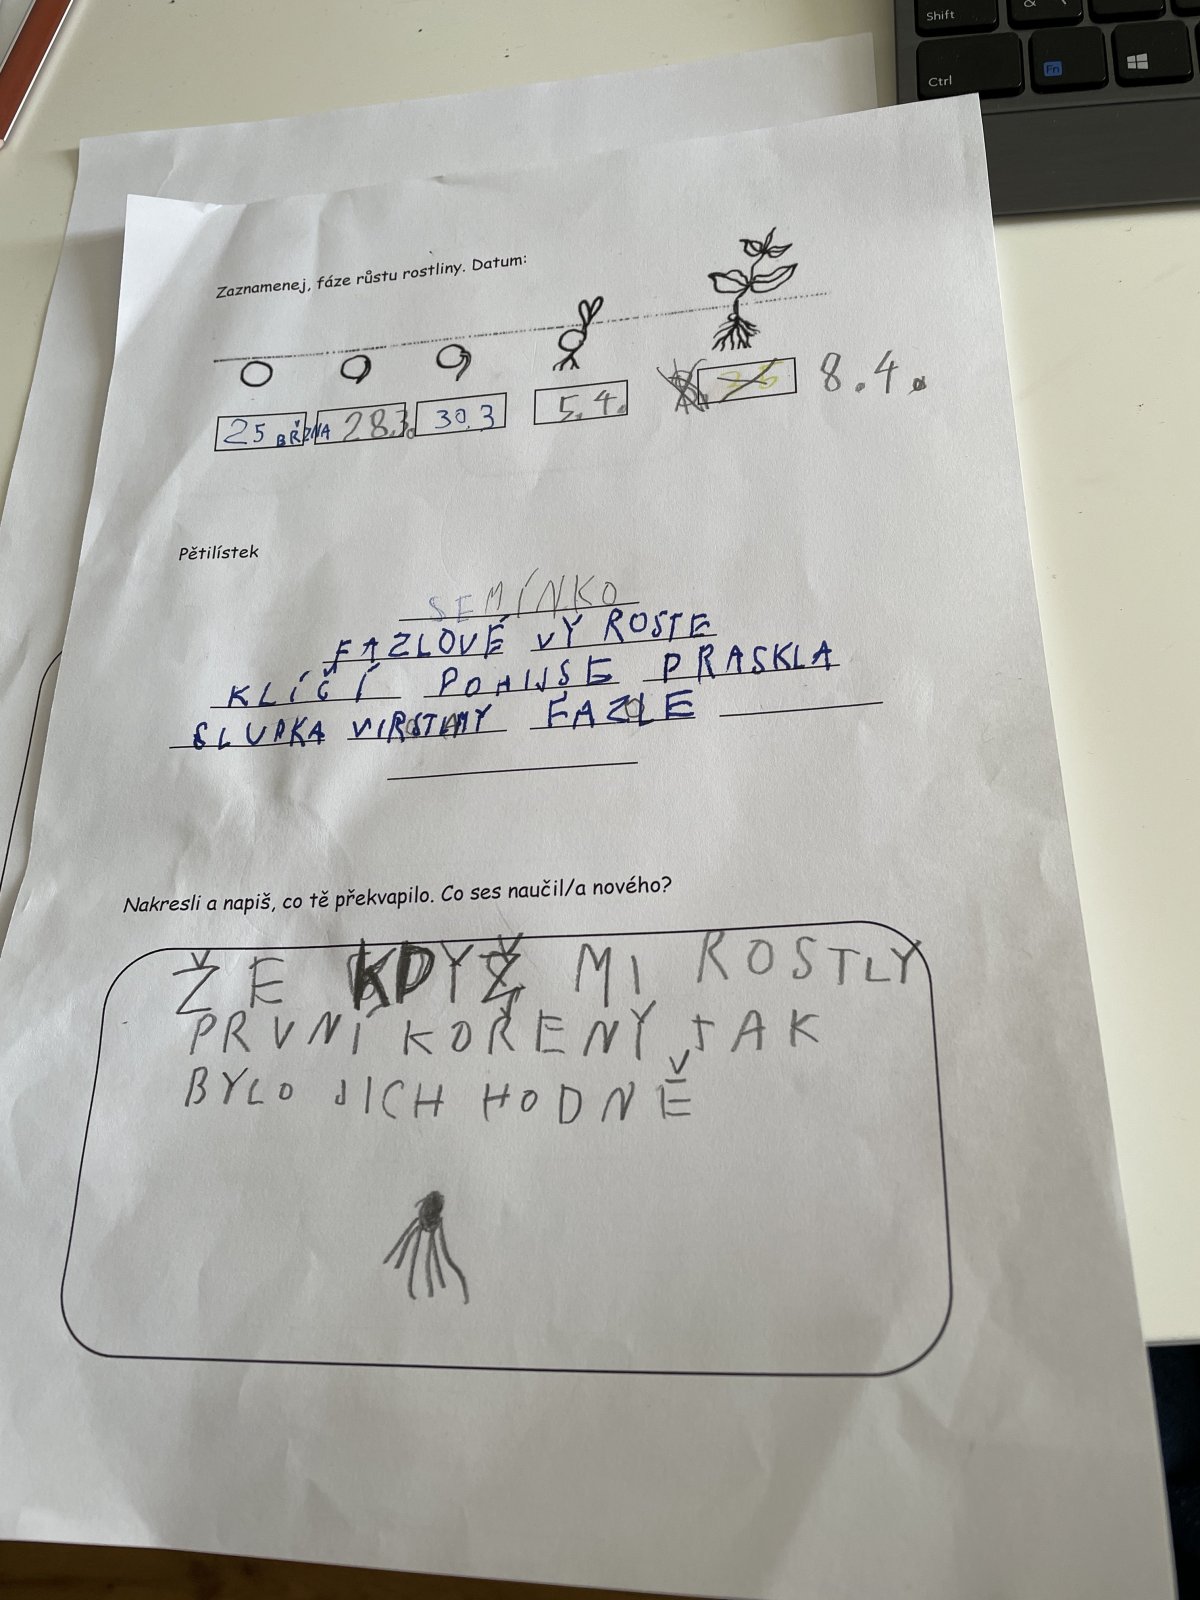 Shift
&
Ctrl
Fn
Zaznamenej, fáze růstu rostliny. Datum:
25 BŘEZNA 28.3. 30.3 5.4. 8.4.
Pětilístek
SEMÍNKO
FAZLOVÉ VY ROSTE
KLÍČÍ POHIJSE PRASKLA
SLUPKA FAZOLE
Nakresli a napiš, co tě překvapilo. Co ses naučil/a nového?
ŽE KDYŽ MI ROSTLY
PRVNÍ KOŘENY TAK
BYLO JICH HODNĚ